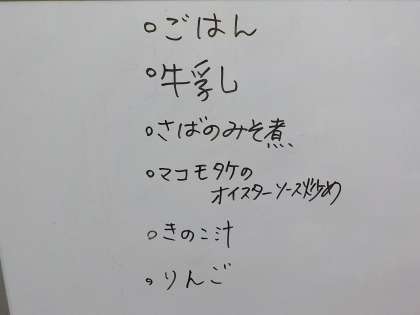 ○ごはん
○牛乳
○さばのみそ煮
○マコモタケの
オイスターソース炒め
○きのこ汁
○りんご